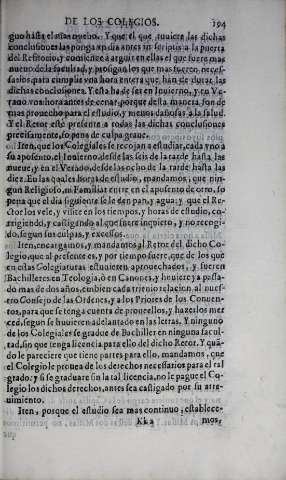 DE LOS COLEGIOS. 194
guo hasta el mas nueuo. Y que el que tuuiere las dichas
conclusiones las ponga vn dia antes in scriptis a la puerta
del Refitorio, y comience à arguir en ellas el que fuere mas
nueuo de la facultad, y prosigan los que mas fueren neces-
sarios, para cumplir vna hora entera que han de durar las
dichas conclusiones. Y esta ha de ser en Inuierno, y en Ve-
rano vna hora antes de cenar, porque desta manera, son de
mas prouecho para el estudio, y menos dañosas a la salud.
Y el Retor esté presente a todas las dichas conclusiones
precisamente, so pena de culpa graue.
Iten, que los Colegiales se recojan a estudiar, cada vno a
su aposento, el Inuierno, desde las seis de la tarde hasta las
nueue, y en el Verano, desde las ocho de la tarde hasta las
diez. En las quales horas de estudio, mandamos, que nin-
gun Religioso, ni Familiar entre en el aposento de otro, so
pena que el dia siguiente se le den pan, y agua: y que el Re-
tor los vele, y visite en los tiempos, y horas de estudio, co-
rrigiendo, y castigando al que fuere inquieto, y no recogi-
do, segun sus culpas, y excessos.
Iten, encargamos, y mandamos al Retor del dicho Co-
legio, que al presente es, y por tiempo fuere, que de los que
en estas Colegiaturas estuuieren aprouechados, y fueren
Bachilleres en Teologia, ò en Canones, y huuiere ya passa-
do mas de dos años, embien cada trienio relacion al nues-
tro Consejo de las Ordenes, y a los Priores de los Conuen-
tos, para que se tenga cuenta de proueellos, y hazerlos mer
ced, segun se huuieren adelantado en las letras. Y ninguno
de los Colegiales se gradue de Bachiller en ninguna facul-
tad, sin que tenga licencia para ello del dicho Retor. Y quá-
do le pareciere que tiene partes para ello, mandamos, que
el Colegio le prouea de los derechos necessarios para el ral
grado: y si se graduare sin la tal licencia, no le pague el Co-
legio los dichos derechos, antes sea castigado por su atre-
uimiento.
Iten, porque el estudio sea mas continuo, establece-
Kk 2 mos,